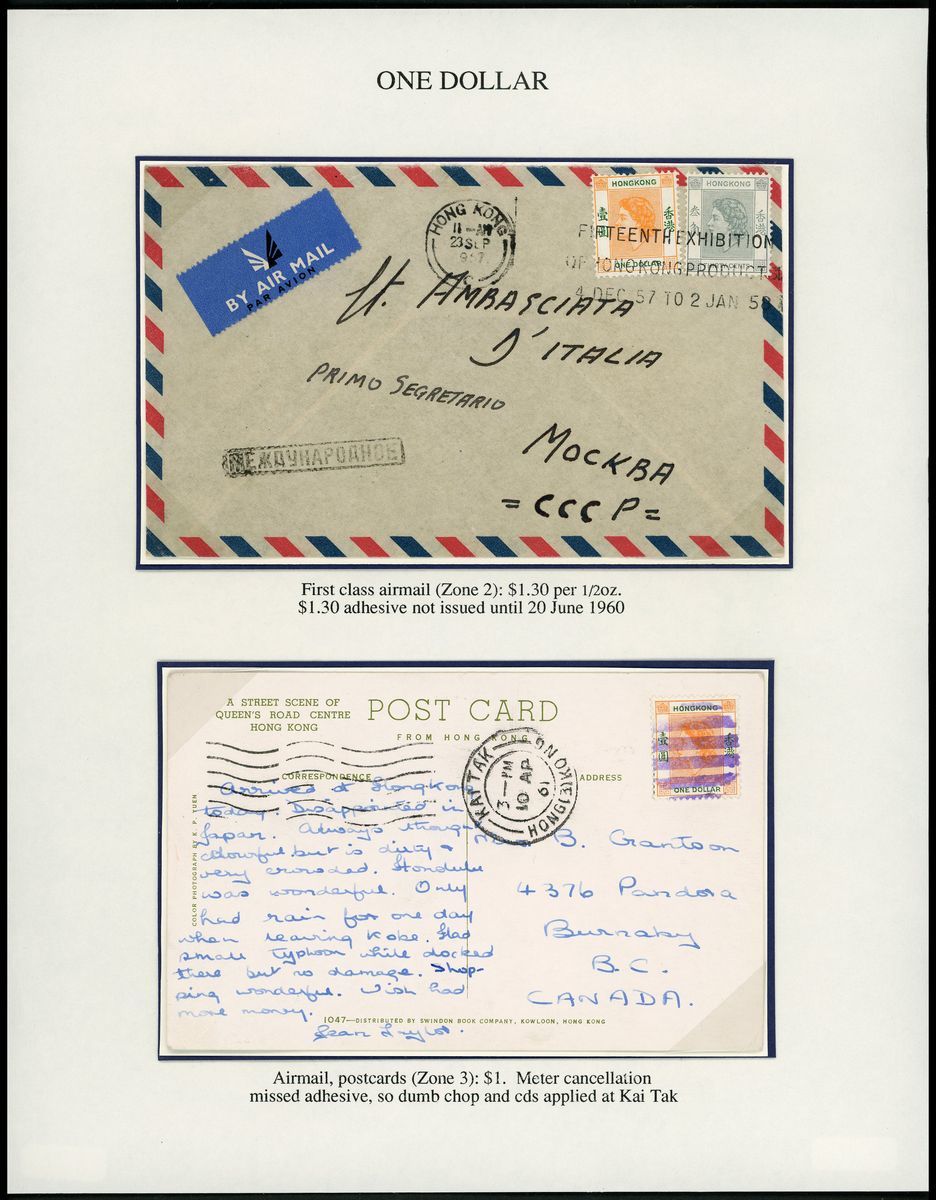 ONE DOLLAR
BY AIR MAIL
PAR AVION
HONG KONG
11 - AM
23 SEP
HONGKONG
壹圓
香港
ONE DOLLAR
HONGKONG
香港
FIFTEENTH EXHIBITION
OF HONG KONG PRODUCTS
4 DEC. 57 TO 2 JAN 58
AMBASCIATA
D'ITALIA
PRIMO SEGRETARIO
МЕЖДУНАРОДНОЕ
МОСКВА
=СССР=
First class airmail (Zone 2): $1.30 per 1/2oz.
$1.30 adhesive not issued until 20 June 1960
A STREET SCENE OF
QUEEN'S ROAD CENTRE
HONG KONG
POST CARD
FROM HONG KONG
CORRESPONDENCE
ADDRESS
KAI TAK
3 - PM
10 AP
61
HONG KONG
HONGKONG
壹圓
香港
ONE DOLLAR
COLOR PHOTOGRAPH BY K. P. TUEN
Arrived at Hongkong
today. Disappointed in
Japan. Always thought
but is dirty &
very crowded. Honolulu
was wonderful. Only
had rain for one day
when leaving Kobe. Had
small typhoon while docked
there but no damage. Shop-
ping wonderful. Wish had
more money.
B.
4376 Pandora
Burnaby
B.C.
CANADA.
1047—DISTRIBUTED BY SWINDON BOOK COMPANY, KOWLOON, HONG KONG
Airmail, postcards (Zone 3): $1. Meter cancellation
missed adhesive, so dumb chop and cds applied at Kai Tak